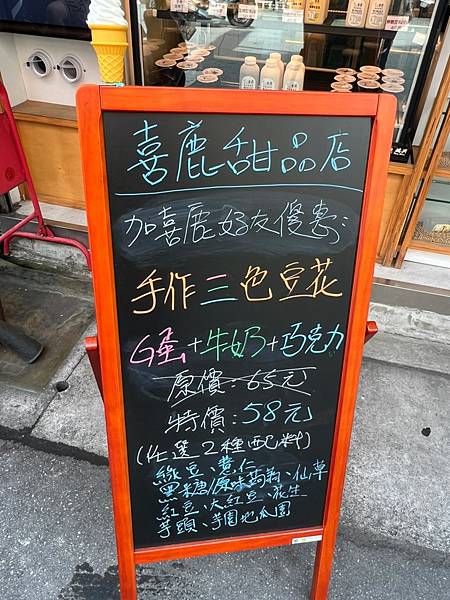 喜鹿甜品店
加喜鹿好友優惠:
手作三色豆花
G蛋+牛奶+巧克力
原價:65元
特價:58元
(任選2種配料)
綠豆、薏仁
黑糖/原味蒟蒻、仙草
紅豆、大紅豆、花生
芋頭、芋圓地瓜圓